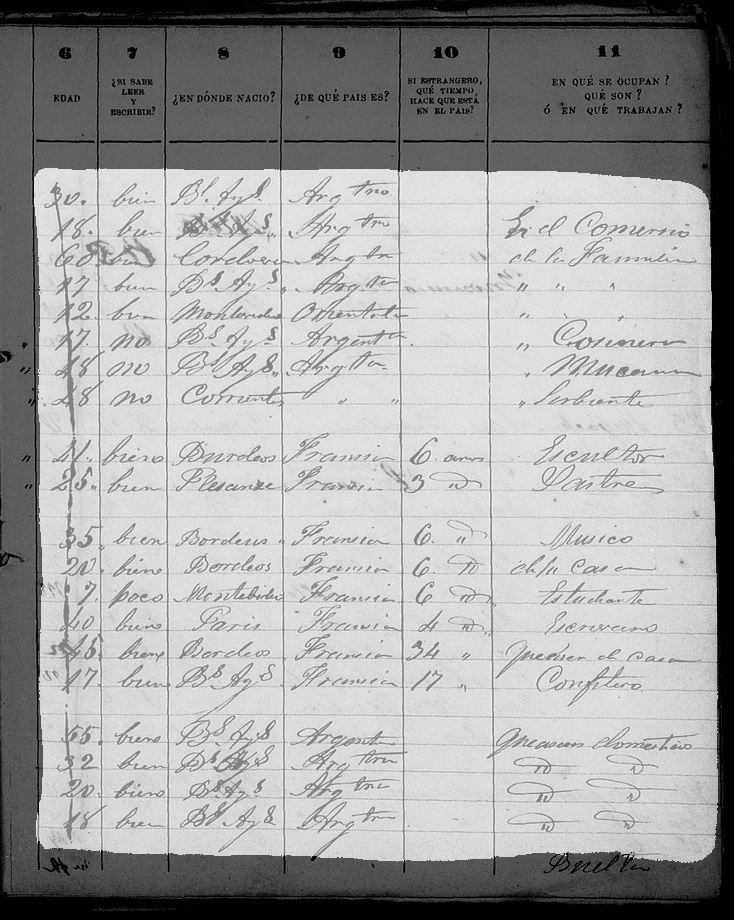 6 7 8 9 10 11
EDAD ¿SI SABE LEER Y ESCRIBIR? ¿EN DÓNDE NACIO? ¿DE QUÉ PAIS ES? SI ESTRANGERO, QUÉ TIEMPO HACE QUE ESTÁ EN EL PAIS? EN QUÉ SE OCUPAN? QUÉ SON? Ó EN QUÉ TRABAJAN?
30. bien Bs. Ays. Argtno
18. bien Bs Ays. Argtno En el Comersio
60 bien Cordovesa Argtna de la Familia
17 bien Bs Ays. Argtn " " "
12. bien Montevideo Orientala " "
" 17. no Bs Ays Argentna. " Cosinera
" 18 no Bs Ays. Argtna. " Mucama
" 28 no Corrientes " " " Serbiente
" 41. biene Burdeos Fransia 6 anos Escultor
" 25. bien Fransia 3 id Sastre
35. bien Bordeus " Fransia 6. " Musico
20. biene Bordeos Fransia 6. id de su Casa
7. poco Montebideo Fransia 6 id Estudiante
40 biene Paris Fransia 4 id Escrivano
45. biene Bordeos Fransia 34 " de casa
17. bien Bs Ays. Fransia 17 " Confitero
55. biene Bs Ays Argentn domestico
32 bien Bs Ays Argtna id id
20. biene Bs Ays Argtna id id
18 bien Bs Ays Argtn id id
Buelta